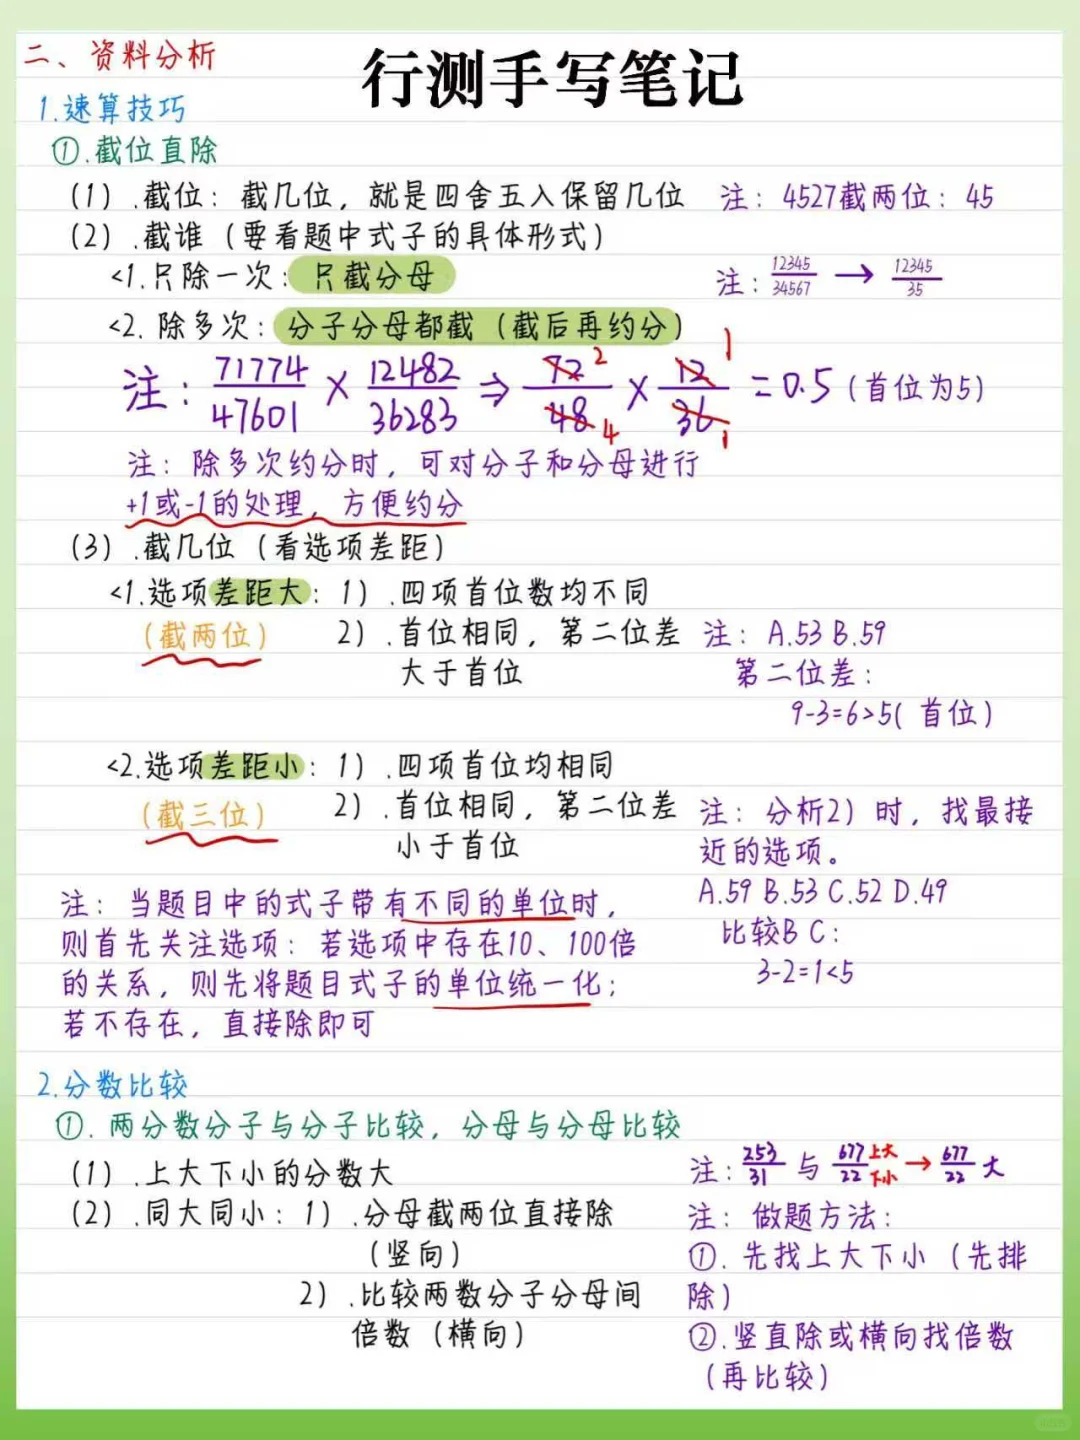 二、资料分析
行测手写笔记
1.速算技巧
①.截位直除
(1).截位：截几位，就是四舍五入保留几位 注：4527截两位：45
(2).截谁（要看题中式子的具体形式）
<1.只除一次：只截分母 注：12345/34567 → 12345/35
<2.除多次：分子分母都截（截后再约分）
注：71774/47601 × 12482/36283 ⇒ 72/48 × 12/36 = 0.5（首位为5）
2 1
4 1
注：除多次约分时，可对分子和分母进行
+1或-1的处理，方便约分
(3).截几位（看选项差距）
<1.选项差距大：1).四项首位数均不同
（截两位） 2).首位相同，第二位差 注：A.53 B.59
大于首位 第二位差：
9-3=6>5(首位)
<2.选项差距小：1).四项首位均相同
（截三位） 2).首位相同，第二位差
小于首位
注：分析2）时，找最接
近的选项。
A.59 B.53 C.52 D.49
比较B C：
3-2=1<5
注：当题目中的式子带有不同的单位时，
则首先关注选项：若选项中存在10、100倍
的关系，则先将题目式子的单位统一化；
若不存在，直接除即可
2.分数比较
①.两分数分子与分子比较，分母与分母比较
(1).上大下小的分数大 注：253/31 与 677/22 上大下小 → 677/22 大
(2).同大同小：1).分母截两位直接除
（竖向）
2).比较两数分子分母间
倍数（横向）
注：做题方法：
①.先找上大下小（先排
除）
②.竖直除或横向找倍数
（再比较）